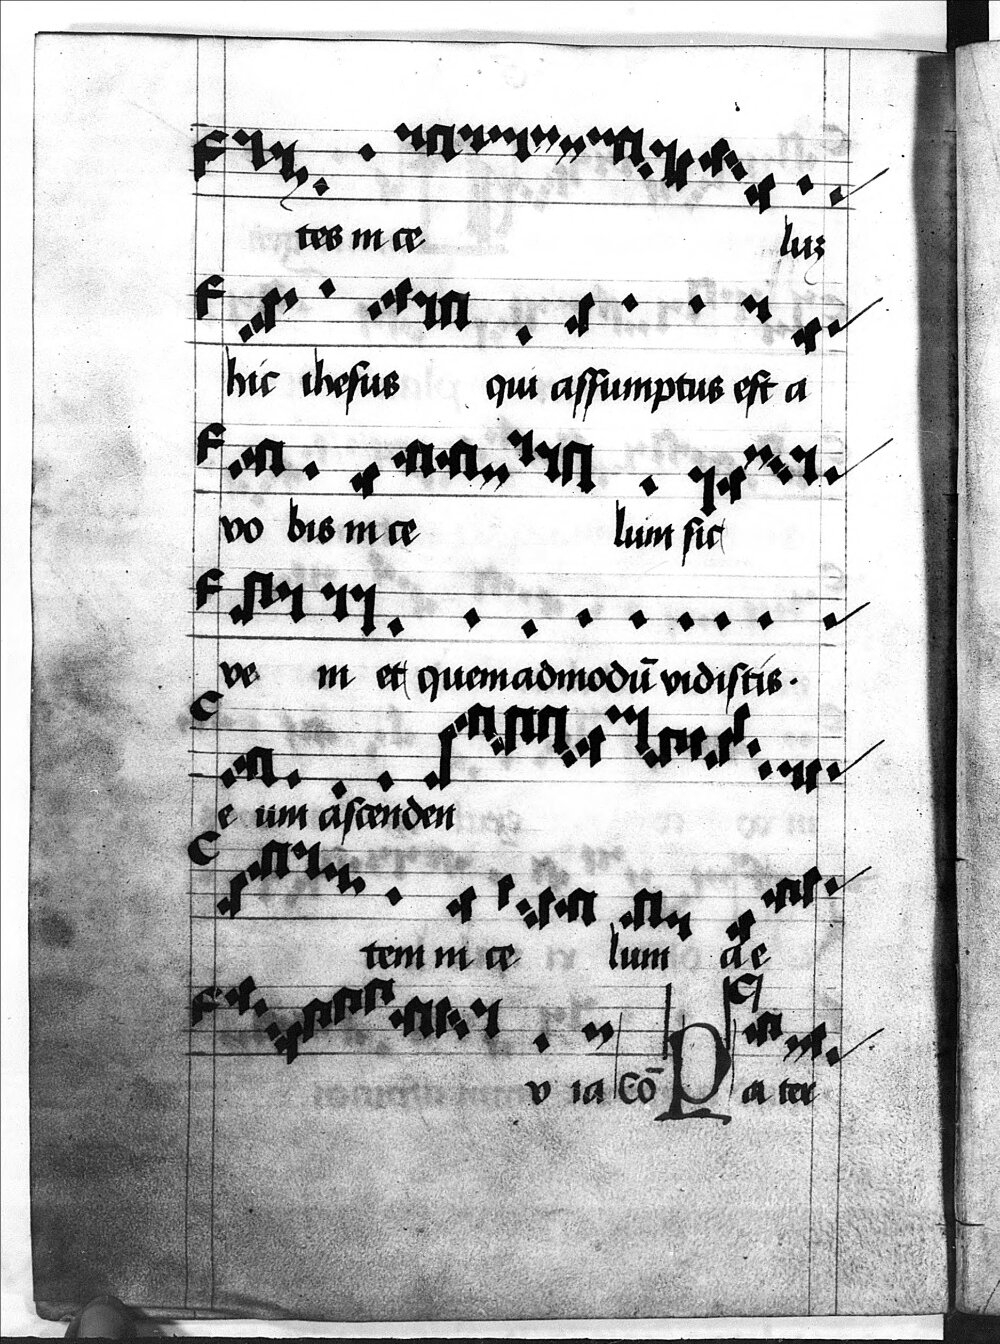 tes in ce luz
hic ihesus qui assumptus est a
vo bis in ce lum sic
ve ni et quemadmodū vidistis ·
e um ascenden
tem in ce lum ae
v ia Cō P a ter